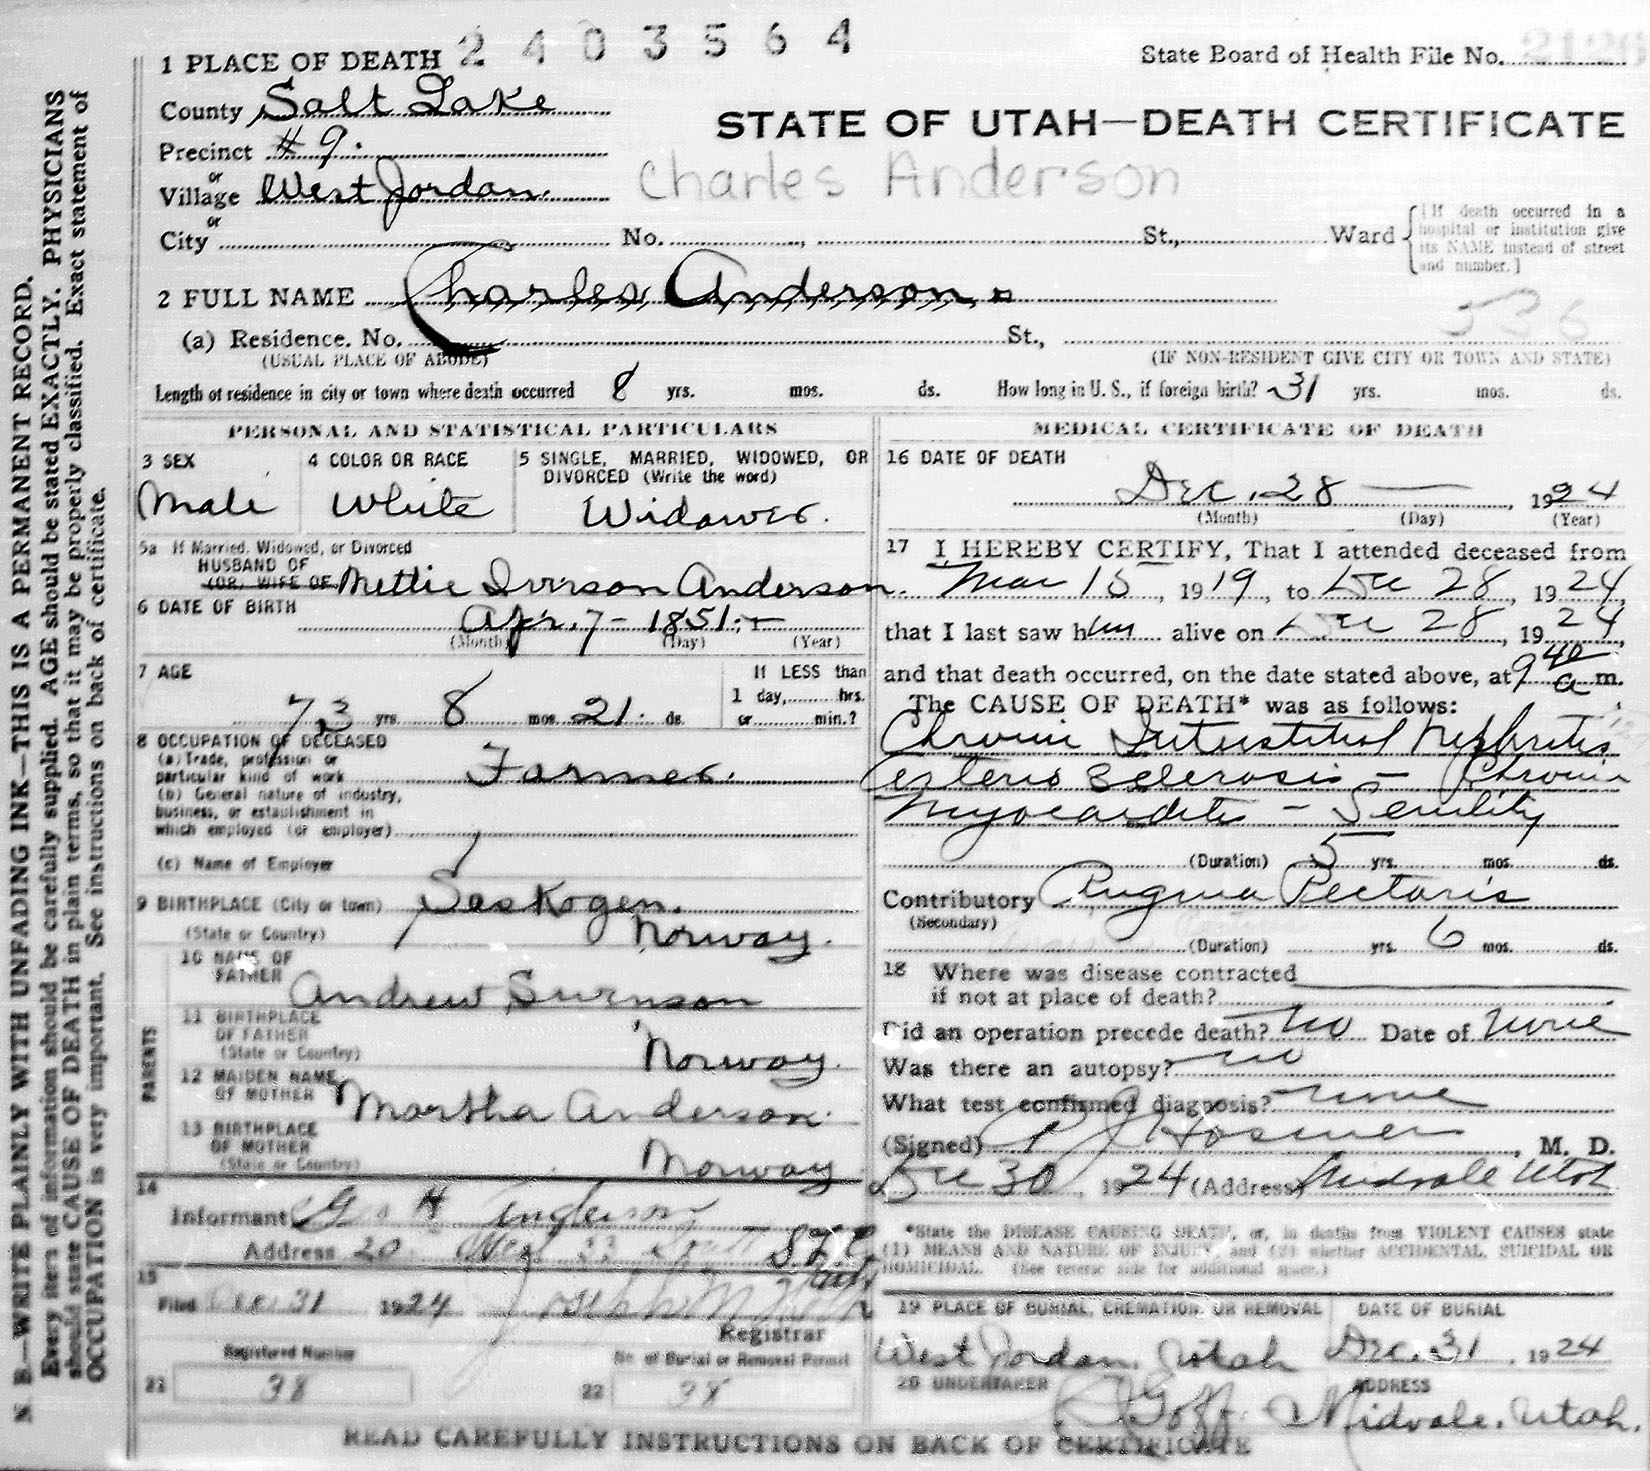 1 PLACE OF DEATH 2403564
State Board of Health File No. 2126
County Salt Lake
STATE OF UTAH—DEATH CERTIFICATE
Precinct #9.
Charles Anderson
or
Village West Jordan.
or
City No. , St., Ward
[If death occurred in a
hospital or institution give
its NAME instead of street
and number.]
2 FULL NAME Charles Anderson.
536
(a) Residence. No. St.,
(USUAL PLACE OF ABODE) (IF NON-RESIDENT GIVE CITY OR TOWN AND STATE)
Length of residence in city or town where death occurred 8 yrs. mos. ds. How long in U. S., if foreign birth? 31 yrs. mos. ds.
PERSONAL AND STATISTICAL PARTICULARS
3 SEX
Male
4 COLOR OR RACE
White
5 SINGLE, MARRIED, WIDOWED, OR
DIVORCED (Write the word)
Widower.
5a If Married, Widowed, or Divorced
HUSBAND OF
(OR) WIFE OF Mettie Iverson Anderson.
6 DATE OF BIRTH
Apr. 7 - 1851.
(Month) (Day) (Year)
7 AGE
73 yrs 8 mos 21. ds.
If LESS than
1 day, hrs.
or min.?
8 OCCUPATION OF DECEASED
(a) Trade, profession or
particular kind of work Farmer.
(b) General nature of industry,
business, or establishment in
which employed (or employer)
(c) Name of Employer
9 BIRTHPLACE (City or town) Saskogen.
(State or Country) Norway.
PARENTS
10 NAME OF
FATHER Andrew Swenson
11 BIRTHPLACE
OF FATHER
(State or Country) Norway.
12 MAIDEN NAME
OF MOTHER Martha Anderson.
13 BIRTHPLACE
OF MOTHER
(State or Country) Norway.
14
Informant Geo H Anderson
Address 20 S.L.C.
15
Filed Dec 31 1924
Registrar
Registered Number
21 38
No. of Burial or Removal Permit
22 38
MEDICAL CERTIFICATE OF DEATH
16 DATE OF DEATH
Dec. 28 — , 1924
(Month) (Day) (Year)
17 I HEREBY CERTIFY, That I attended deceased from
Mar 15, 1919, to Dec 28, 1924
that I last saw him alive on Dec 28, 1924,
and that death occurred, on the date stated above, at 9 40 a m.
The CAUSE OF DEATH* was as follows:
Chronic Interstitial Nephritis
Arterio Sclerosis - Chronic
Myocarditis - Senility
(Duration) 5 yrs. mos. ds.
Contributory Angina Pectoris
(Secondary)
(Duration) yrs. 6 mos. ds.
18 Where was disease contracted
if not at place of death?
Did an operation precede death? No Date of None
Was there an autopsy? no
What test confirmed diagnosis? none
(Signed) P J Hosmer, M. D.
Dec 30, 1924 (Address) Midvale Utah
*State the DISEASE CAUSING DEATH, or, in deaths from VIOLENT CAUSES state
(1) MEANS AND NATURE OF INJURY, and (2) whether ACCIDENTAL, SUICIDAL OR
HOMICIDAL. (See reverse side for additional space.)
19 PLACE OF BURIAL, CREMATION, OR REMOVAL
West Jordan, Utah
DATE OF BURIAL
Dec. 31, 1924
20 UNDERTAKER
Goff
ADDRESS
Midvale, Utah.
READ CAREFULLY INSTRUCTIONS ON BACK OF CERTIFICATE
N. B.—WRITE PLAINLY WITH UNFADING INK—THIS IS A PERMANENT RECORD.
Every item of information should be carefully supplied. AGE should be stated EXACTLY. PHYSICIANS
should state CAUSE OF DEATH in plain terms, so that it may be properly classified. Exact statement of
OCCUPATION is very important. See instructions on back of certificate.